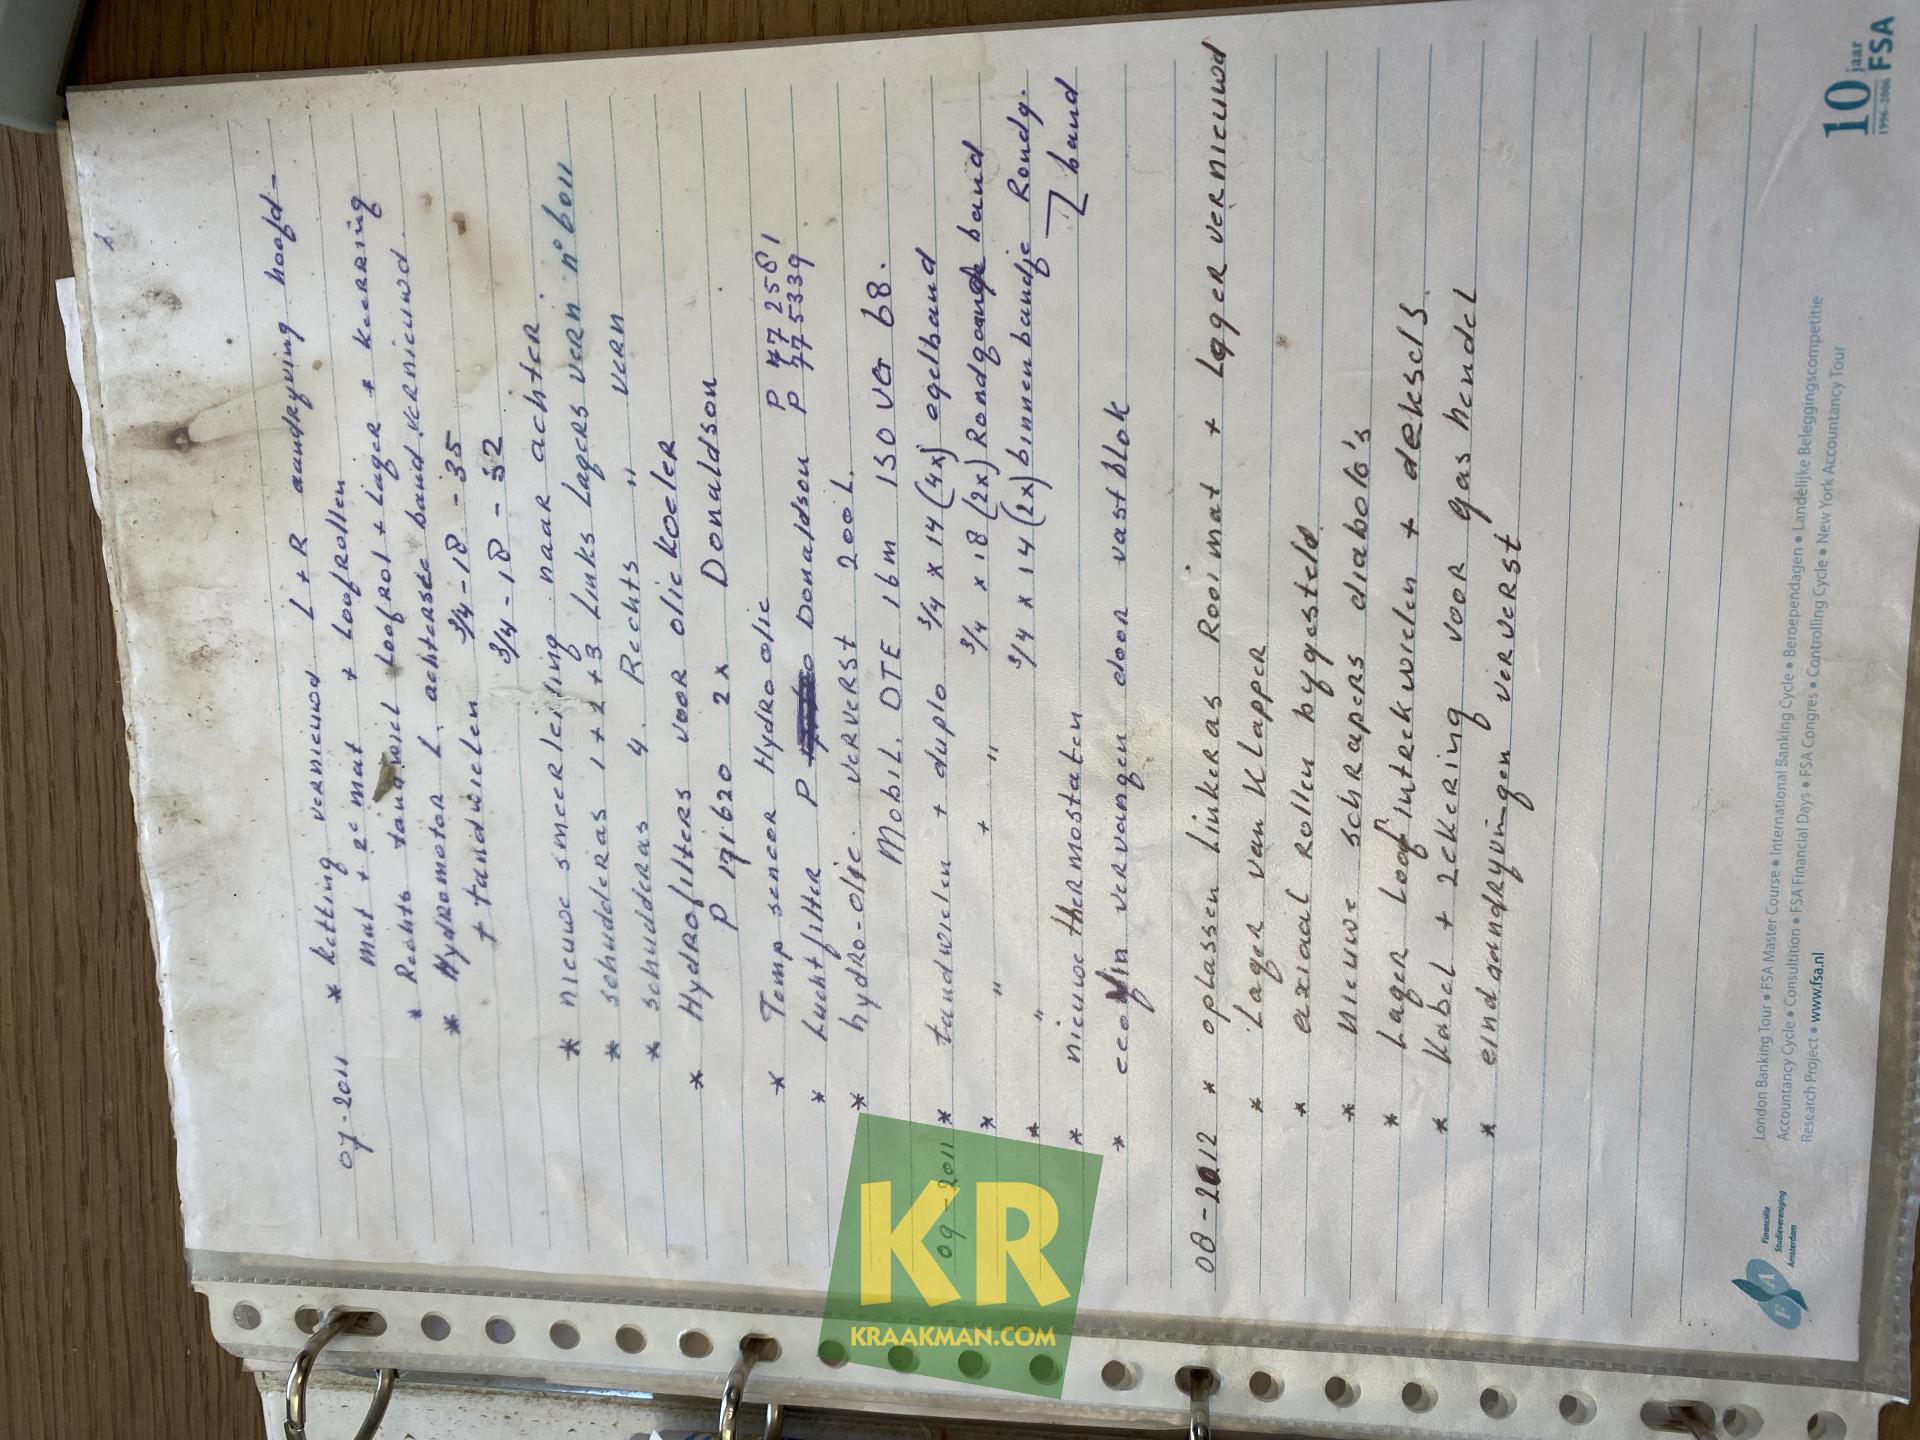 07-2011 * ketting vernieuwd L + R aandryving hoofd-
mat + 2e mat + Loofrollen
* Rechts tandwiel Loofrol + Lager + keerring
* Hydromotor L. achterste band vernieuwd.
+ tandwielen 3/4 - 18 - 35
3/4 - 18 - 32
* nieuwe smeerleiding naar achter.
* schudderas 1 + 2 + 3 Links Lagers vern n° 6011
* schudderas 4. Rechts " vern
* Hydrofilters voor oliekoeler
P 171620 2x Donaldson
* Temp sensor Hydro olie
* Luchtfilter P Donaldson P 772581
P 775339
* hydro-olie ververst 200 L.
Mobil. DTE 16m ISO VG 68.
09-2011 * tandwielen + duplo 3/4 x 14 (4x) egelband
* " + " 3/4 x 18 (2x) Rondgaande band
* " 3/4 x 14 (2x) binnenbandje Rondg.
band
* nieuwe thermostaten
* vervangen door vastblok
08-2012 * oplassen linkeras Rooimat + Lager vernieuwd
* Lager van Klapper
* axiaal rollen bygesteld
* Nieuwe schrapers diabolo's
* Lager Loofintrekwielen + deksels.
* Kabel + zekering voor gashendel
* eindaandryvingen ververst
London Banking Tour • FSA Master Course • International Banking Cycle • Beroependagen • Landelijke Beleggingscompetitie
Accountancy Cycle • Consultition • FSA Financial Days • FSA Congres • Controlling Cycle • New York Accountancy Tour
Research Project • www.fsa.nl
Financiële
Studievereniging
Amsterdam
F S A
10 jaar
1996-2006 FSA
KR
KRAAKMAN.COM